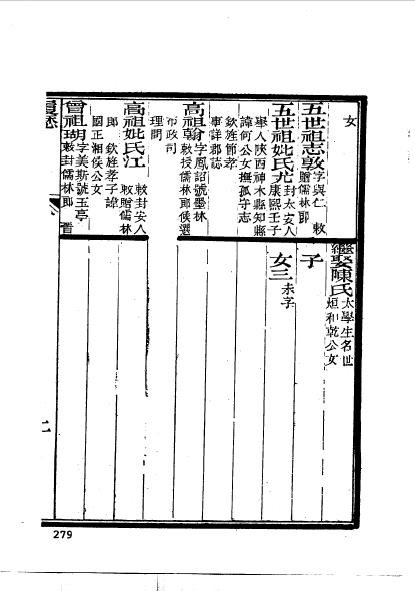 女
五世祖志敦字與仁 敕
贈儒林郎
五世祖妣氏尤封太安人
康熙壬子
舉人陝西神木縣知縣
諱何公女撫孤守志
欽旌節孝
事詳郡誌
高祖翰字鳳詔號墨林
敕授儒林郎候選
布政司
理問
高祖妣氏江敕封安人
敕贈儒林
郎 欽旌孝子諱
國正湘侯公女
曾祖瑚字美斯號玉亭
敕封儒林郎 晉
繼娶陳氏太學生名世
烜和乾公女
子
女三未字
279